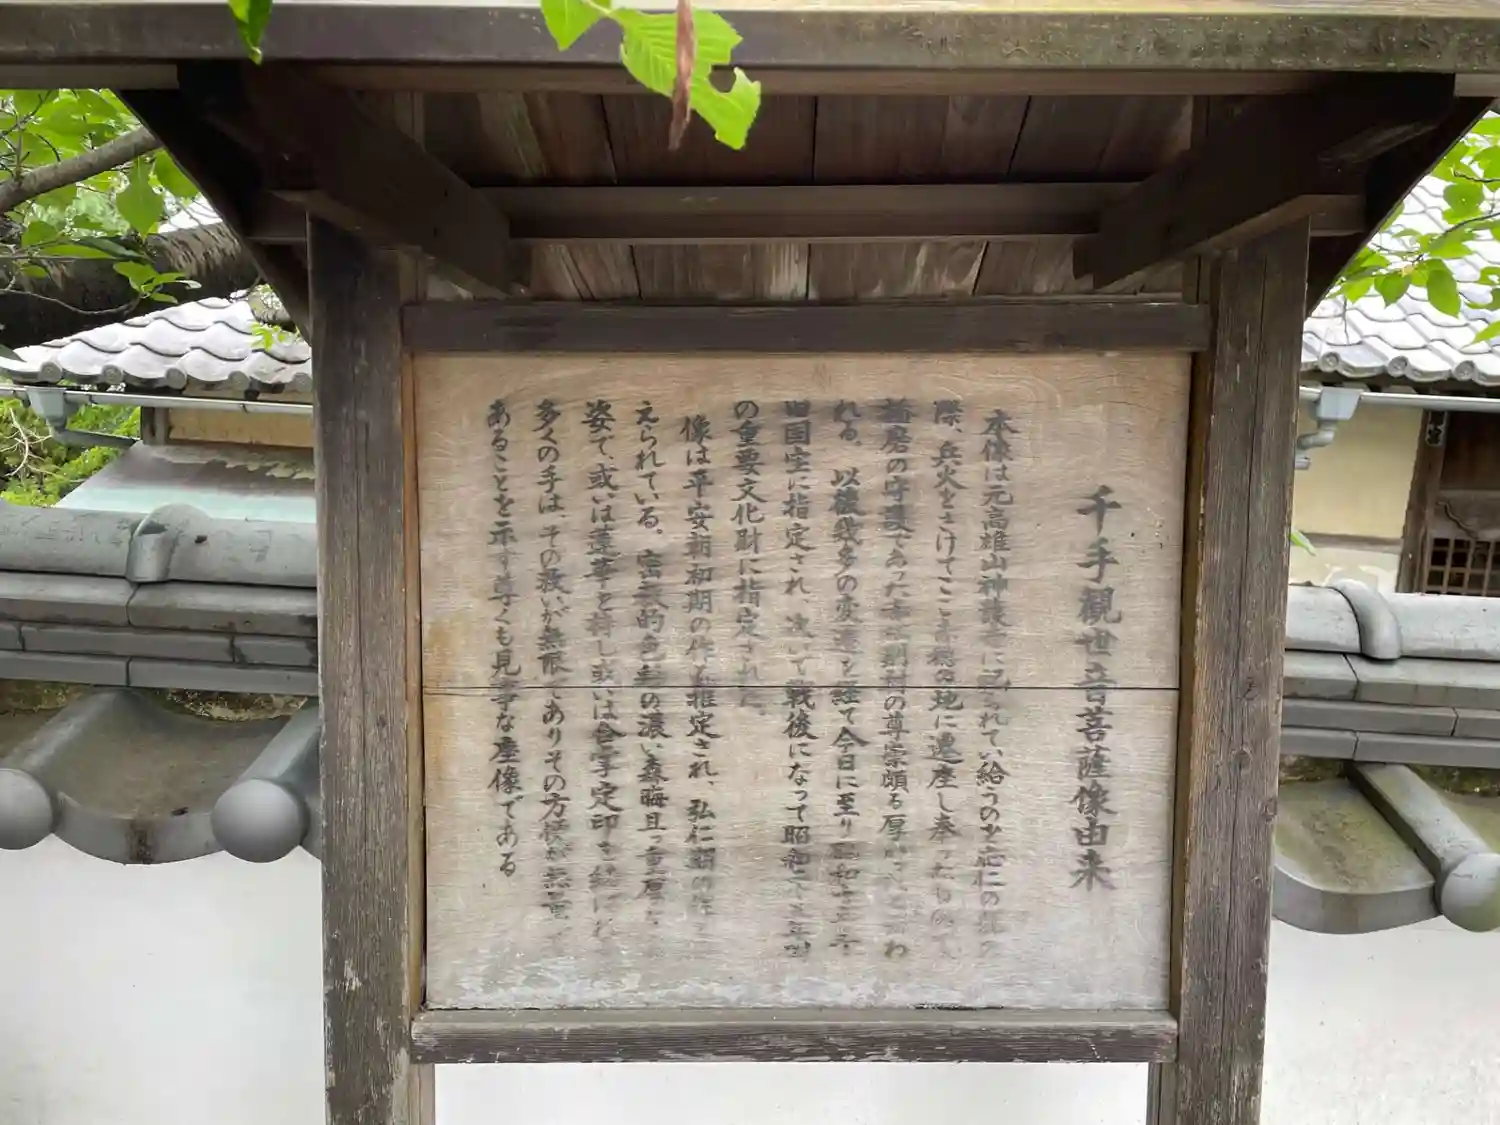 千手観世音菩薩像由来
本像は元高雄山神護寺に祀られてい給うのを応仁の乱の
際、兵火をさけてここ 地に遷座し奉ったもので、
播磨の守護であった赤松 の尊崇頗る厚かった わ
れる。以後幾多の変遷を経て今日に至り昭和 年
旧国宝に指定され、次いで戦後になって昭和 年
の重要文化財に指定された。
像は平安朝初期の作と推定され、弘仁 
えられている。密教的色彩の濃い森晦且つ重厚な
姿で、或いは蓮華を持し或いは合掌定印を結ばれ
多くの手は、その救いが無限でありその方様が無
あることを示す尊くも見事な座像である